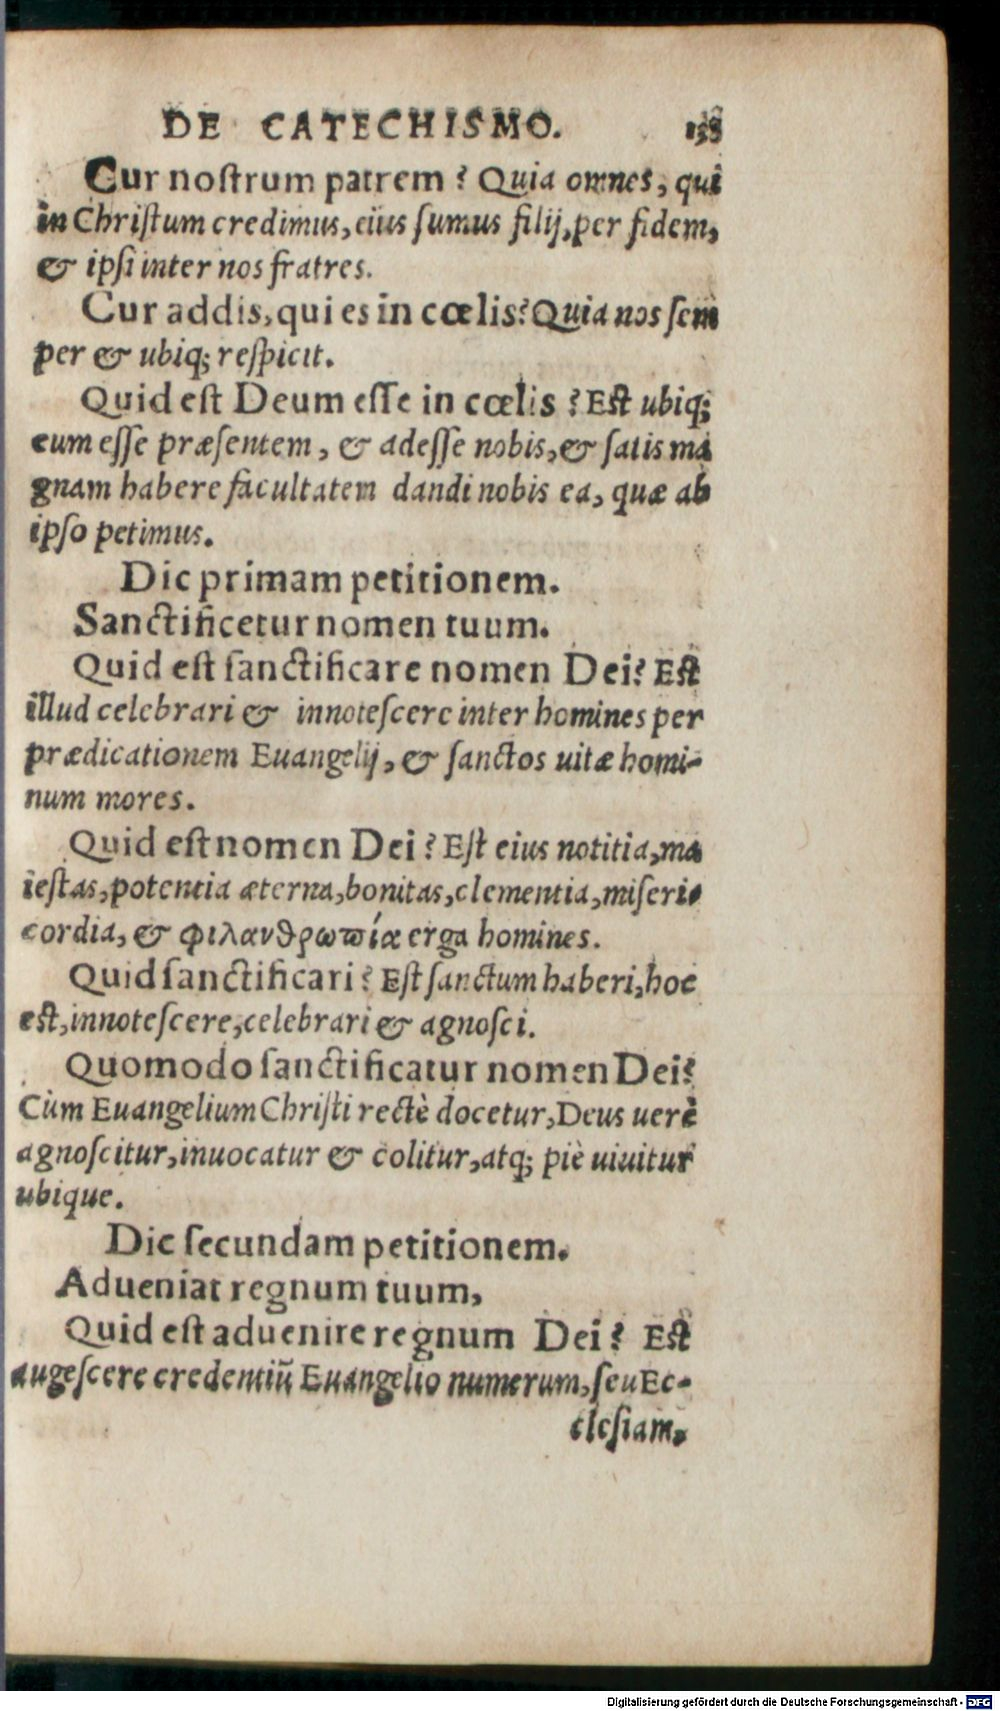 DE CATECHISMO.
Cur noſtrum patrem? Quia omnes, qui
in Chriſtum credimus, eius ſumus filij, per fidem,
& ipſi inter nos fratres.
Cur addis, qui es in cœlis? Quia nos ſem
per & ubiq; reſpicit.
Quid eſt Deum eſſe in cœlis? Eſt ubiq;
eum eſſe præſentem, & adeſſe nobis, & ſatis ma
gnam habere facultatem dandi nobis ea, quæ ab
ipſo petimus.
Dic primam petitionem.
Sanctificetur nomen tuum.
Quid eſt ſanctificare nomen Dei? Eſt
illud celebrari & innoteſcere inter homines per
prædicationem Euangelij, & ſanctos uitæ homi-
num mores.
Quid eſt nomen Dei? Eſt eius notitia, ma
ieſtas, potentia æterna, bonitas, clementia, miſeri
cordia, & φιλανθρωπία erga homines.
Quid ſanctificari? Eſt ſanctum haberi, hoc
eſt, innoteſcere, celebrari & agnoſci.
Quomodo ſanctificatur nomen Dei?
Cùm Euangelium Chriſti rectè docetur, Deus uerè
agnoſcitur, inuocatur & colitur, atq; piè uiuitur
ubique.
Dic ſecundam petitionem.
Adueniat regnum tuum,
Quid eſt aduenire regnum Dei? Eſt
augeſcere credentiū Euangelio numerum, ſeu Ec-
cleſiam,
Digitalisierung gefördert durch die Deutsche Forschungsgemeinschaft - DFG